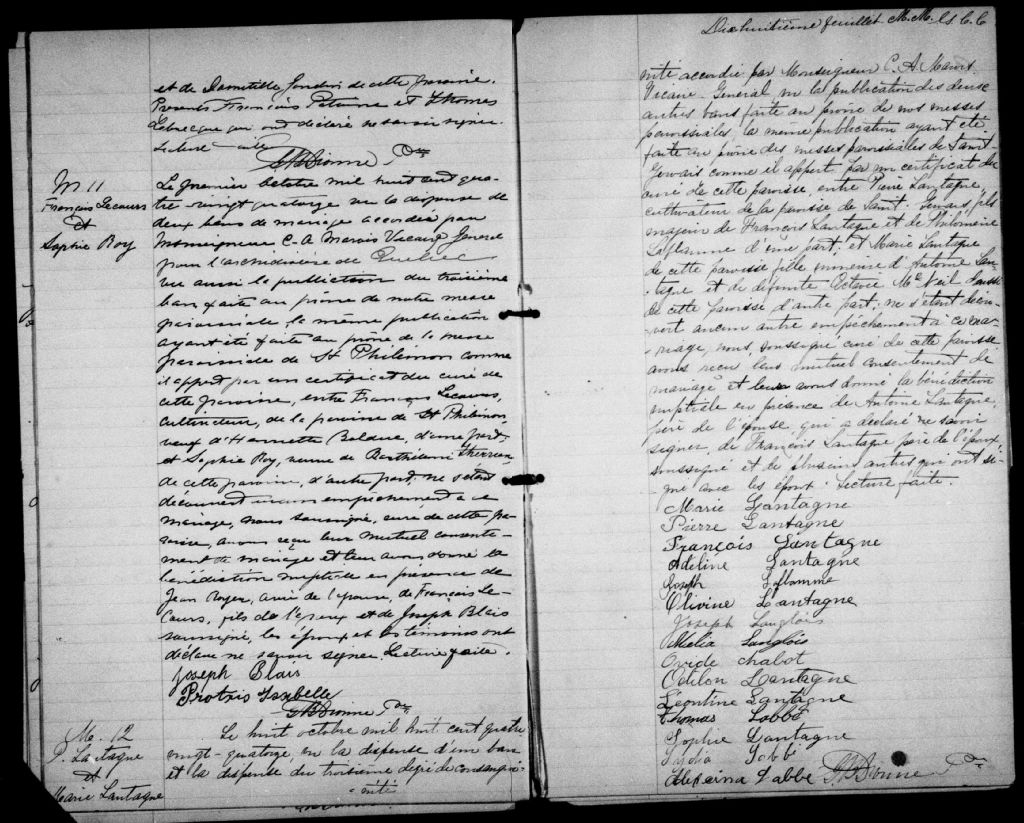 et de Domitille Gondin de cette paroisse.
Presents François Patoine et Thomas
Lebrecque qui ont déclaré ne savoir signer.
Lecture faite
J B Dionne Ptre
M 11
François Lecours
et
Sophie Roy
Le premier octobre mil huit cent qua-
tre-vingt quatorze vu la dispense de
deux bans de mariage accordée par
Monseigneur C. A Marois Vicaire General
pour l'archidiocèse de Quebec
vu aussi la publication du troisième
ban faite au prône de notre messe
paroissiale, la même publication
ayant été faite au prône de la messe
paroissiale de St Philémon comme
il appert par un certificat du curé de
cette paroisse, entre François Lecours,
cultivateur, de la paroisse de St Philémon,
veuf d'Henriette Bolduc, d'une part,
et Sophie Roy, veuve de Barthélemi Therrien,
de cette paroisse, d'autre part, ne s'étant
découvert aucun empêchement à ce
mariage, nous soussigné, curé de cette pa-
roisse, avons reçu leur mutuel consente-
ment de mariage et leur avons donné la
bénédiction nuptiale en présence de
Jean Royer, ami de l'épouse, de François Le-
Cours, fils de l'époux et de Joseph Blais
soussigné, les époux et les témoins ont
déclaré ne savoir signer. Lecture faite.
Joseph Blais
Protais Isabelle
J B Dionne Ptre
M. 12
P. Lantagne
et
Marie Lantagne
Le huit octobre mil huit cent quatre
vingt-quatorze, vu la dispense d'un ban
et la dispense du troisième degré de consangui-
-nité
Dixhuitième feuillet M. M. C. C
nité accordée par Monseigneur C. A. Marois
Vicaire-General vu la publication des deux
autres bans faite au prône de nos messes
paroissiales, la même publication ayant été
faite au prône des messes paroissiales de Saint-
Gervais comme il appert par un certificat du
curé de cette paroisse, entre Pierre Lantagne,
cultivateur de la paroisse de Saint-Gervais, fils
majeur de François Lantagne et de Philomène
Laflamme d'une part, et Marie Lantagne
de cette paroisse fille mineure d'Antoine Lan-
-tagne et de défunte Octavie Mc Neil aussi
de cette paroisse d'autre part; ne s'étant décou-
-vert aucun autre empêchement à ce ma-
riage, nous, soussigné curé de cette paroisse
avons reçu leur mutuel consentement de
mariage et leur avons donné la bénédiction
nuptiale en présence de Antoine Lantagne,
père de l'épouse, qui a déclaré ne savoir
signer, de François Lantagne père de l'époux,
soussigné et de plusieurs autres qui ont si-
-gné avec les époux. Lecture faite.
Marie Lantagne
Pierre Lantagne
François Lantagne
Adéline Lantagne
Joseph Laflamme
Olivine Lantagne
Joseph Langlois
Amélia Langlois
Ovide Chabot
Odilon Lantagne
Léontine Lantagne
Thomas Labbé
Sophie Lantagne
Lydia Labbé
Alexina Labbé J B Dionne Ptre